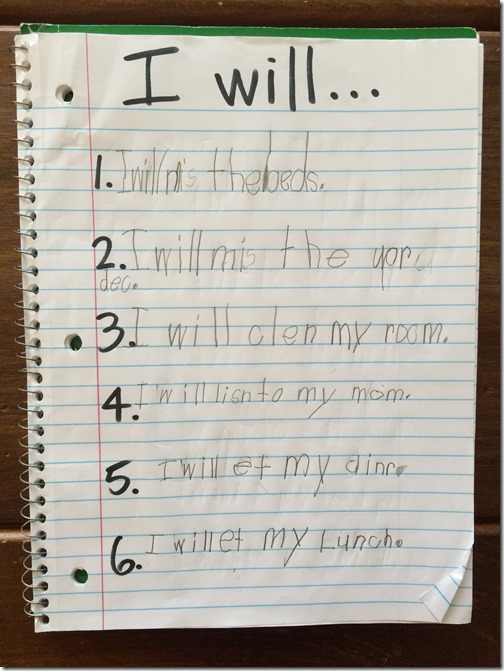 I will...
1. I will mis the beds.
2. I will mis the
dec.
3. I will clen my room.
4. I will lisn to my mom.
5. I will et my dinr.
6. I will et my Lunch.